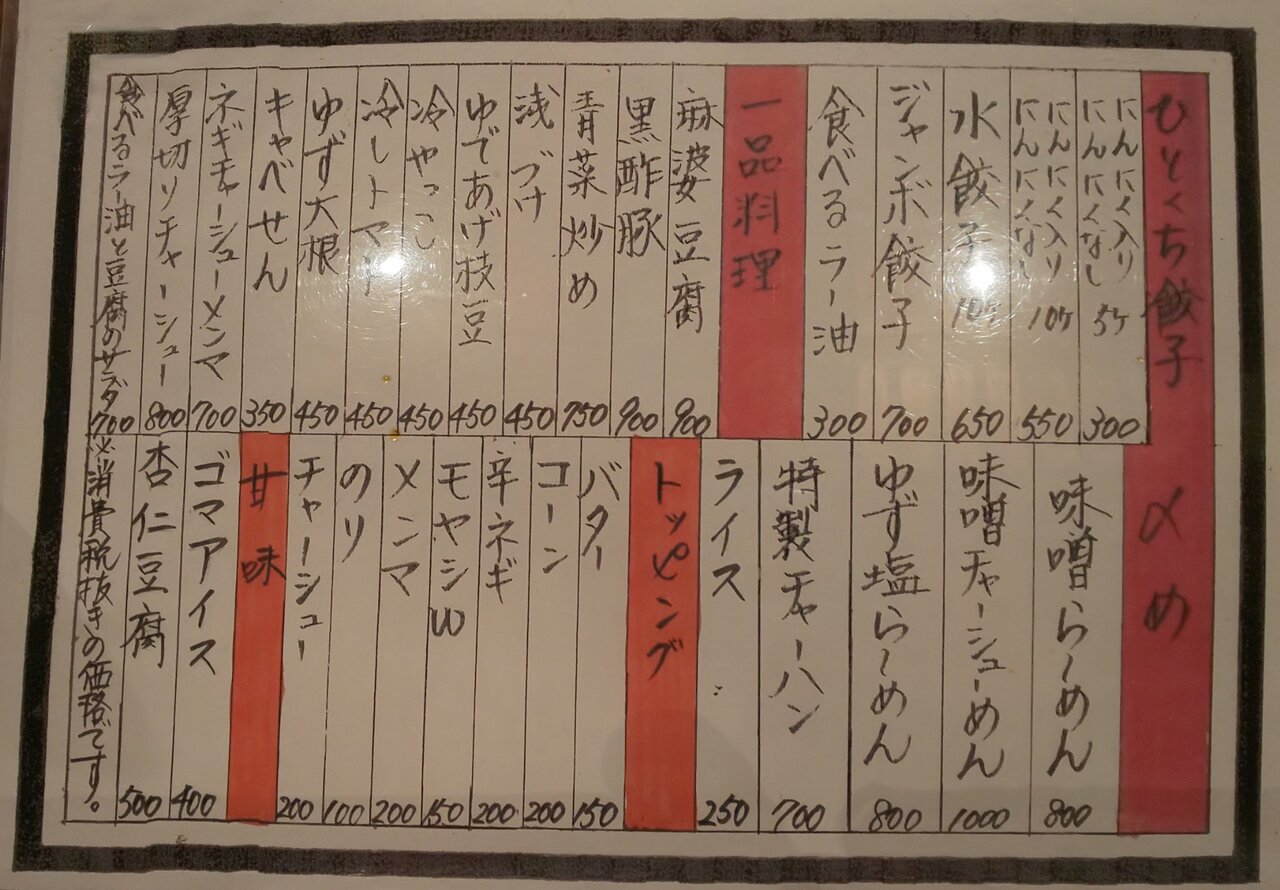 ひとくち餃子
にんにく入り
にんにくなし 5ケ 300
にんにく入り
にんにくなし 10ケ 550
水餃子 10ケ 650
ジャンボ餃子 700
食べるラー油 300
一品料理
麻婆豆腐 900
黒酢豚 900
青菜炒め 750
浅づけ 450
ゆであげ枝豆 450
冷やっこ 450
冷しトマト 450
ゆず大根 450
キャベせん 350
ネギチャーシューメンマ 700
厚切りチャーシュー 800
食べるラー油と豆腐のサラダ 700
〆め
味噌らーめん 800
味噌チャーシューめん 1000
ゆず塩らーめん 800
特製チャーハン 700
ライス 250
トッピング
バター 150
コーン 200
辛ネギ 200
モヤシW 150
メンマ 200
のり 100
チャーシュー 200
甘味
ゴマアイス 400
杏仁豆腐 500
※消費税抜きの価格です。